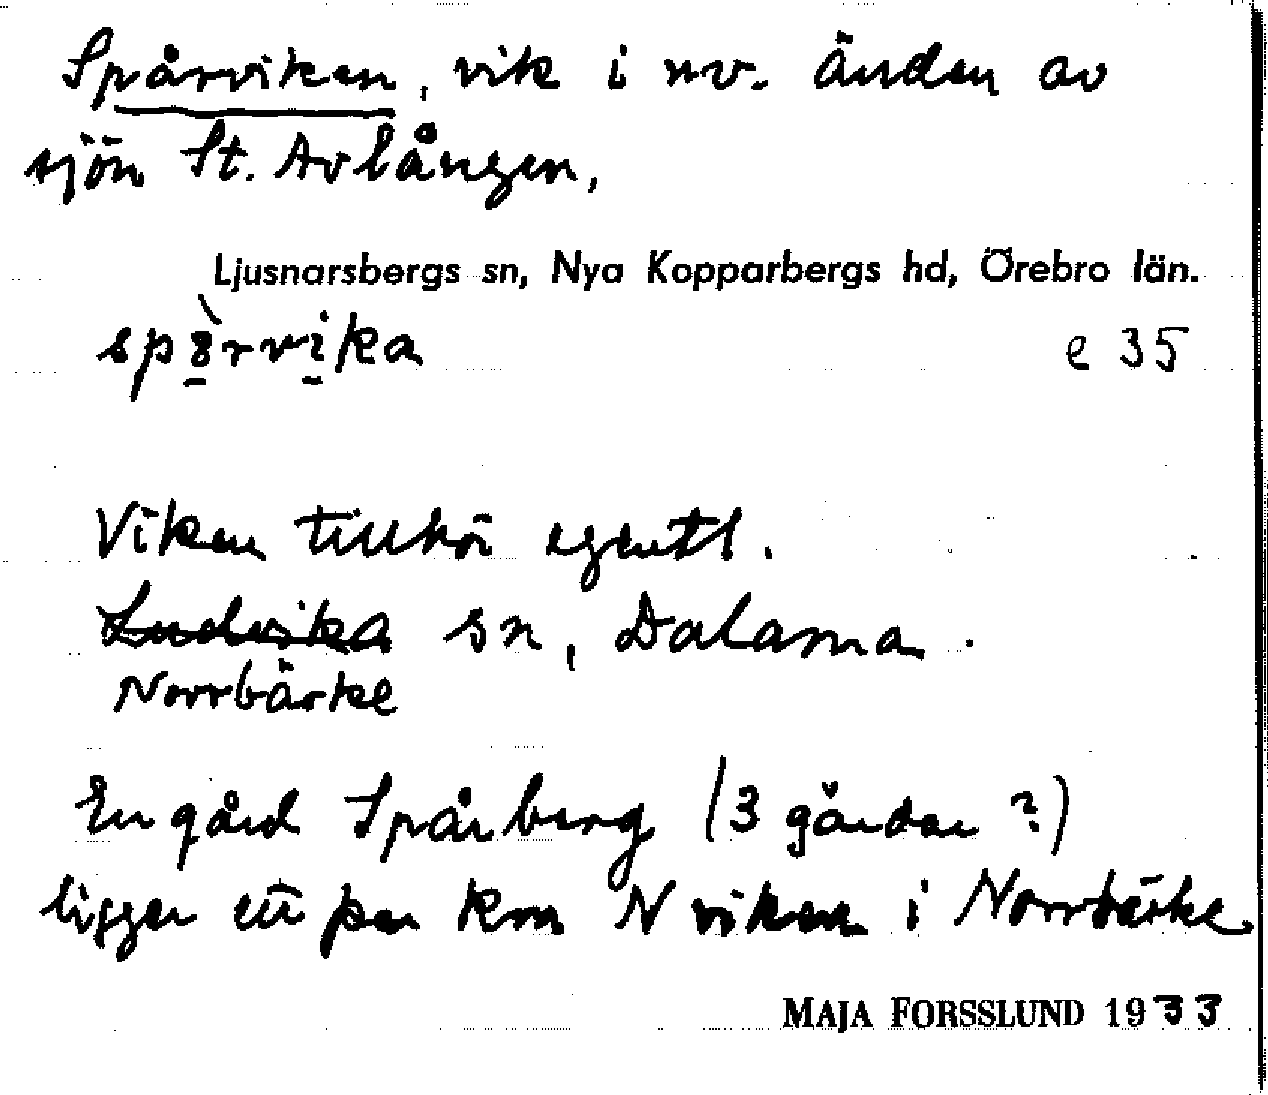 Spårviken, vik i nv. änden av
sjön St. Avlången,
Ljusnarsbergs sn, Nya Kopparbergs hd, Örebro län.
spò̠rvi̠ka e 35
Viken tillhör egentl.
Ludvika sn, Dalarna.
Norrbärke
En gård Spårberg (3 gårdar?)
ligger ett par km N viken i Norrbärke
MAJA FORSSLUND 1933